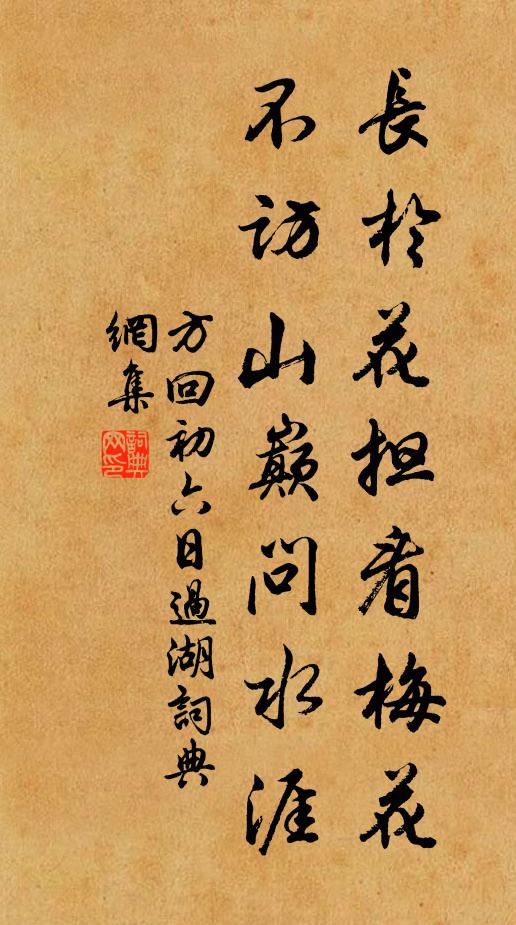 長於花担看梅花
不訪山巔問水涯
方回初六日過湖詞典
網集
詞典
网印